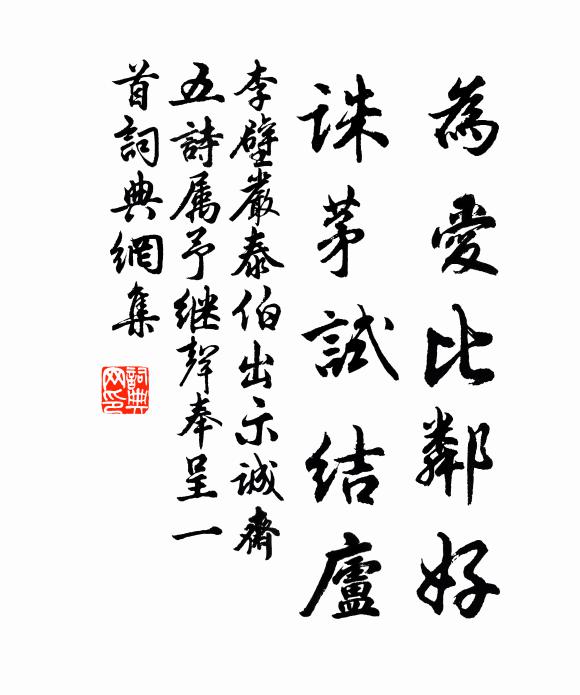 為愛比鄰好
誅茅試結廬
李壁嚴泰伯出示誠齋
五詩属予继聲奉呈一
首詞典網集
詞典
网印